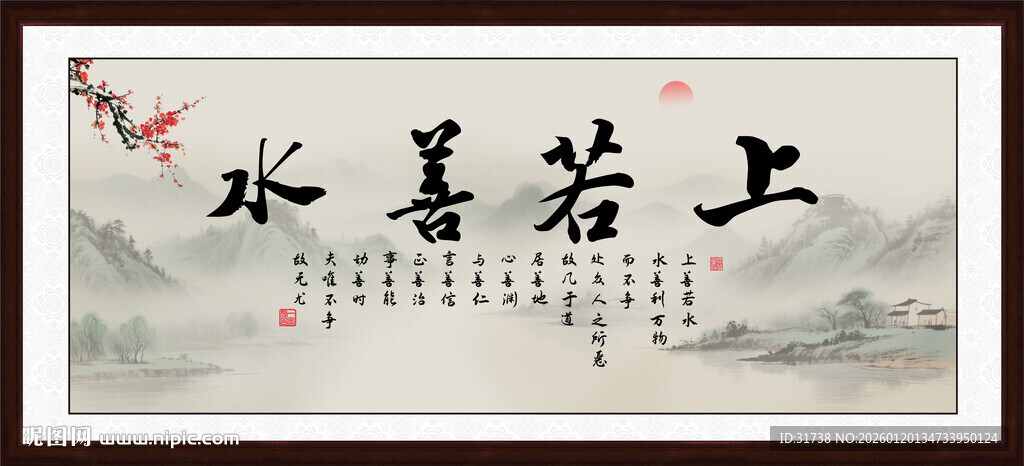 上若善水
上善若水
水善利万物
而不争
处众人之所恶
故几于道
居善地
心善渊
与善仁
言善信
正善治
事善能
动善时
夫唯不争
故无尤
昵图网 www.nipic.com
ID:31738 NO:20260120134733950124